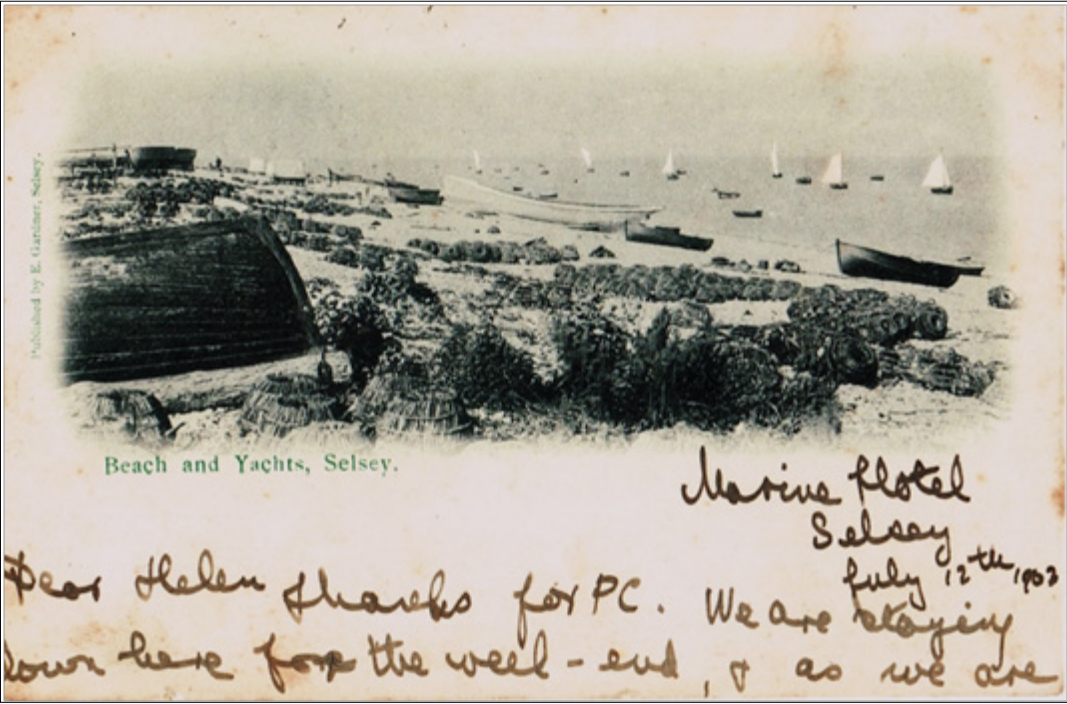 Published by E. Gardner, Selsey.
Beach and Yachts, Selsey.
Marine Hotel
Selsey
July 12th, 1903
Dear Helen thanks for PC. We are staying
down here for the week-end, & as we are